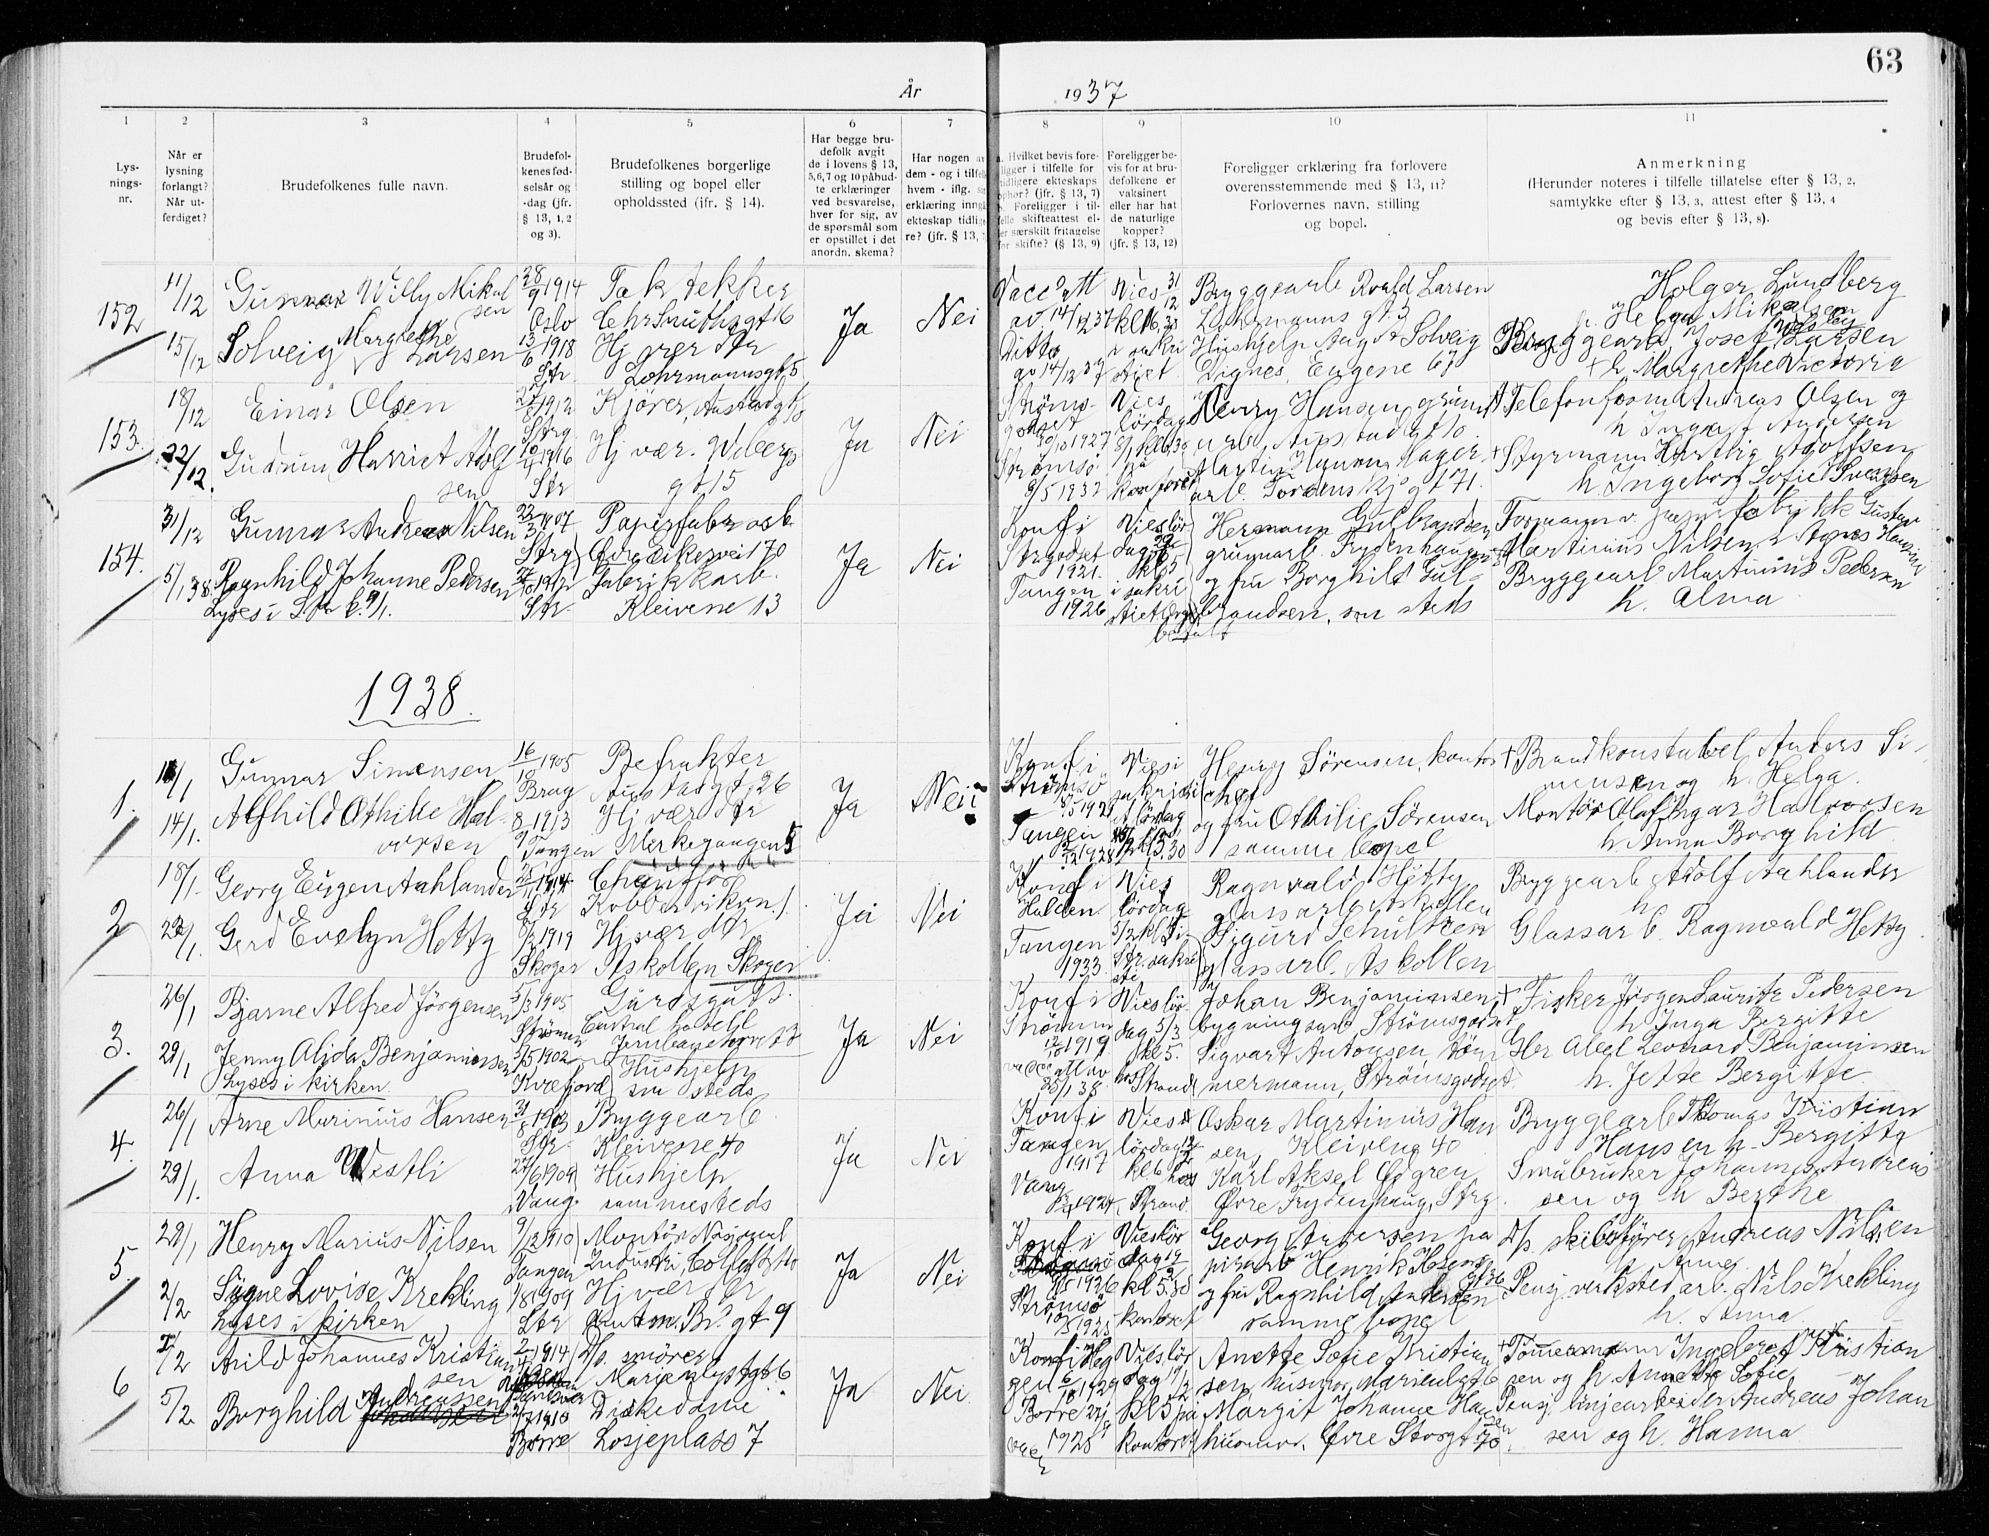 63
År
1937
1
2
3
4
5
6
7
8
9
10
11
Lys-
nings-
nr.
Når er
lysning
forlangt?
Når ut-
ferdiget?
Brudefolkenes fulle navn.
Brudefol-
kenes fød-
selsår og
-dag (jfr.
§ 13, 1, 2
og 3).
Brudefolkenes borgerlige
stilling og bopel eller
opholdssted (jfr. § 14).
Har begge bru-
defolk avgit
de i lovens § 13,
5, 6, 7 og 10 påbud-
te erklæringer
ved besvarelse,
hver for sig, av
de spørsmål som
er opstillet i det
anordn. skema?
Har nogen av
dem - og i tilfelle
hvem - iflg.
erklæring inngå
ekteskap tidlige
re? (jfr. § 13,
a. Hvilket bevis fore-
ligger i tilfelle for
tidligere ekteskaps
ophør? (jfr. § 13, 7)
b. Foreligger i til-
felle skifteattest el-
ler særskilt fritagelse
for skifte? (§ 13, 9)
Foreligger be-
vis for at bru-
defolkene er
vaksinert
eller har hat
de naturlige
kopper?
(jfr. § 13, 12)
Foreligger erklæring fra forlovere
overensstemmende med § 13, 11?
Forlovernes navn, stilling
og bopel.
Anmerkning
(Herunder noteres i tilfelle tillatelse efter § 13, 2,
samtykke efter § 13, 3, attest efter § 13, 4
og bevis efter § 13, 8).
152
11/12
15/12
Gunnar Willy Mikal
sen
Solveig Margrethe Larsen
28/9 1914
Oslo
13/6 1918
Str
Taktekker
Chr Smithsgt 6
Hj vær str
Lohrmannsgt 5
Ja
Nei
Vacc att
av 14/12 37
Ditto
av 14/12 37
Vies 31/12
kl 6,30
i sakri
stiet
Bryggearb Roald Larsen
Lohrmanns gt. 3
Hushjelp Aagot Solveig
Holger Lundberg
h. Helga Mikalsen
Bryggearb Josef Larsen
h Margrethe Victoria
153.
18/12
22/12.
Einar Olsen
Gudrun Harriet Adolf
sen
1912
Strg.
1916
Str
Kjører, Austadgt 10
Hj vær. Wibergs
gt 15
Ja
Nei
Strøms-
godset
1927
Strømsø
9/5 1932
Vies
lørdag
8/1 kl 6,30
på
kontoret
Henry Hansen, grunn
arb, Austadgt 10
Martin Hansen lager-
arb. Tordenskj. gt 71.
Telefonformann Andreas Olsen og
h Inga f Andersen
Styrmann Hartvig Adolfsen
h Ingeborg Sofie Svensen
154.
31/12
5/1 38.
Gunnar Andreas Nilsen
Ragnhild Johanne Pedersen
Lyses i Str k. 9/1.
22/3 1907
Strg
1912
Str.
Papirfabr arb.
Øvre Eikervei 170
Fabrikkarb.
Kleivene 13
Ja
Nei
Konf i
Strgodset
1921.
Tangen
1926
Vies lør
dag
kl 5
i sakri
stiet
betalt
Hermann Gulbrandsen
grunnarb. Frydenhaug
og fru Borghild Gul-
brandsen, sm steds
Formann v. papirfabrikk Gustav
Martinius Nilsen h Agnes Hansine
Bryggearb Martinius Pedersen
h. Alma
1938.
1.
11/1
14/1.
Gunnar Simensen
Alfhild Othilie Hal-
vorsen
16/10 1905
Brag
8/9 1913
Tangen
Befrakter
Austadgt. 26
Hj vær str
Merkegangen 5
Ja
Nei
Konf i
Strømsø
1921
Tangen
1928
Vies i
sakristi
lørdag
kl 5.30
Henry Sørensen, kontor
chef
og fru Othilie Sørensen
samme bopel
Brandkonstabel Anders Si-
mensen og h. Helga.
Montør Olaf Ingar Halvorsen
h. Anna Borghild
2
18/1.
22/1.
Georg Eugen Aahlander
Gerd Evelyn Hetty
1914
Str
1919
Skoger
Chauffør
Kobbervikun.
Hj vær str
Askollen Skoger
Ja
Nei
Konf i
Halden
Tangen
1933
Vies
lørdag
5/2 kl 5 i
Str. sakri
sti
Ragnvald Hetty
glassarb Askollen
Sigurd Schultzen
glassarb. Askollen
Bryggearb Adolf Aahlander
h
Glassarb. Ragnvald Hetty
3.
26/1
29/1
Bjarne Alfred Jørgensen
Jenny Alida Benjaminsen
Lyses i kirken.
5/3 1905
Strømm
5/5 1902
Kvæfjord
Gårdsgutt.
Central hotell
Jernbanetorvet 3
Hushjelp
sm steds
Ja
Nei
Konf i
Strømm
1919
vacc att av
25/1 38.
Vies lør
dag 5/3
kl 5.
hos Strand
Johan Benjaminsen
bygningsarb Strømsgodset
Sigvart Antonsen tøm
mermann, Strømsgodset.
Fisker Jørgen Lauritz Pedersen
h Inga Bergitte
Gbr Abel Leonard Benjaminsen
h. Jette Bergitte
4.
26/1
29/1.
Arne Marinius Hansen
Anna Vestli
1903
Str
27/6 1904
Vang
Bryggearb
Kleivene 40
Hushjelp
sammesteds
Ja
Nei
Konf i
Tangen
1917
Vang
1920
Vies
lørdag 12/2
kl 6 hos
Strand.
Oskar Martinius Han
sen, Kleivene 40
Karl Aksel Øsgren
Øvre Frydenhaug, Strg.
Bryggearb Thomas Kristian
Hansen h. Bergitta
Småbruker Johannes Andreas
sen og h Berthe
5
29/1
2/2
Henry Marius Nilsen
Signe Lovise Krekling
Lyses i kirken
9/12 1910
Tangen
1/8 1909
Str
Montør Nasjonal
Industri,
Hj vær str
Knut m. Br. gt 9
Ja
Nei
Konf i
1926
Strømsø
1925
Vies lør
dag 19/2
kl 5.30
kontoret
Georg Andersen pa
pirarb Henrik Ibsens
gt 36
og fru Ragnhild Andersen
samme bopel
D/s. skibsfører Andreas Nilsen
h. Anna
Pensj. verkstedarb. Nils Krekling
h. Anna
6
2/2
5/2
Arild Johannes Kristian
sen
Borghild Andreassen
1914
1910
Borre
D/s. smører
Marienlystgt 6
Diskedame
Losjeplass 7
Ja
Nei
Konf i Hau
gen
1929
Borre
1925
Vies lør
dag
kl 5 på
kontoret
Anette Sofie Kristian
sen husmor, Marienlystgt 6
Margit Johanne Han
sen
husmor. Øvre Storgt 70
Tømmermann Ingebret Kristian
sen og h. Annette Sofie
Pensj. linjearbeider Andreas Johan
sen og h. Hanna